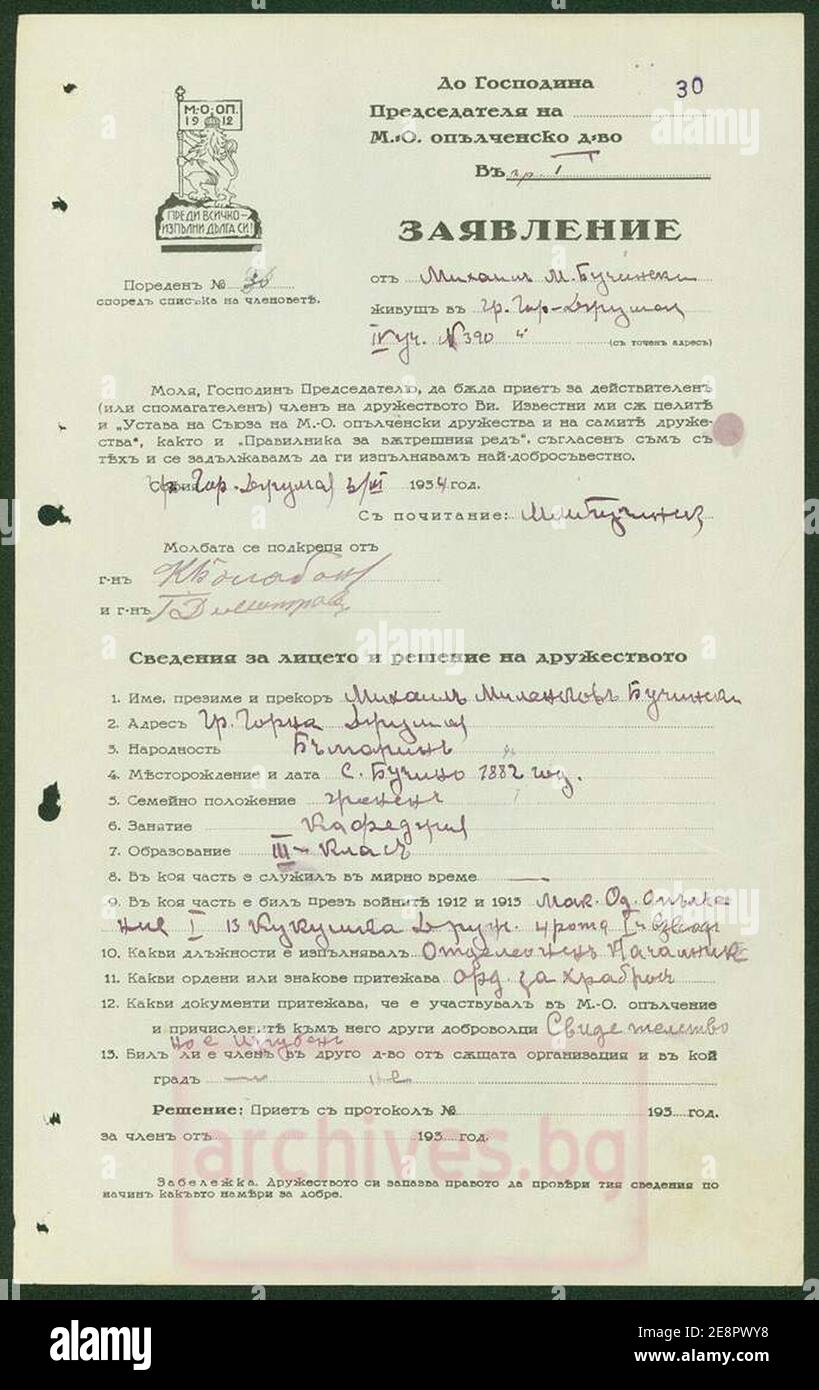 До Господина
30
Председателя на
М.-О. опълченско д-во
Въ гр. I
М.-О.-ОП.
19 12
ПРЕДИ ВСИЧКО-
ИЗПЪЛНИ ДЪЛГА СИ!
ЗАЯВЛЕНИЕ
Пореденъ № 30
споредъ списъка на членоветѣ.
отъ Михаилъ М. Бучински
живущъ въ гр. Гор-Джумая
IV уч. № 390
(съ точенъ адресъ)
Моля, Господинъ Председателю, да бѫда приетъ за действителенъ
(или спомагателенъ) членъ на дружеството Ви. Известни ми сѫ целитѣ
и „Устава на Съюза на М.-О. опълченски дружества и на самитѣ друже-
ства“, както и „Правилника за вѫтрешния редъ“, съгласенъ съмъ съ
тѣхъ и се задължавамъ да ги изпълнявамъ най-добросъвестно.
София Гор. Джумая 3/VI 1934 год.
Съ почитание:
Молбата се подкрепя отъ
г-нъ
и г-нъ
Сведения за лицето и решение на дружеството
1. Име, презиме и прекоръ Михаилъ Миленковъ Бучински
2. Адресъ Гр. Горна Джумая
3. Народность Бъларинъ
4. Мѣсторождение и дата С. Бучино 1882 год.
5. Семейно положение жененъ
6. Занятие Кафеджия
7. Образование III - Класъ
8. Въ коя часть е служилъ въ мирно време —
9. Въ коя часть е билъ презъ войнитѣ 1912 и 1913 Мак. Од. Опълче
ние I 13 Кукушка Друж. 4 рота I ч взводъ
10. Какви длъжности е изпълнявалъ Отделенъ Началникъ
11. Какви ордени или знакове притежава Орд. за храбрость
12. Какви документи притежава, че е участвувалъ въ М.-О. опълчение
и причисленитѣ къмъ него други доброволци Свидетелство
но е изгубено
13. Билъ ли е членъ въ друго д-во отъ сѫщата организация и въ кой
градъ — не
Решение: Приетъ съ протоколъ № 193 год.
за членъ отъ 193 год.
archives.bg
Забележка. Дружеството си запазва правото да провѣри тия сведения по
начинъ какъвто намѣри за добре.
alamy
Image ID: 2E8PWY8
www.alamy.com